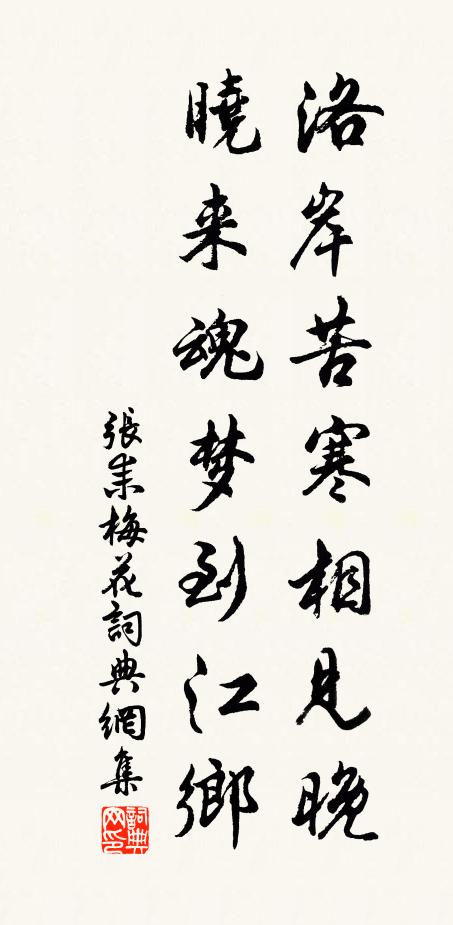 洛岸苦寒相見晚
曉来魂梦到江鄉
張耒梅花詞典網集
詞典
网印